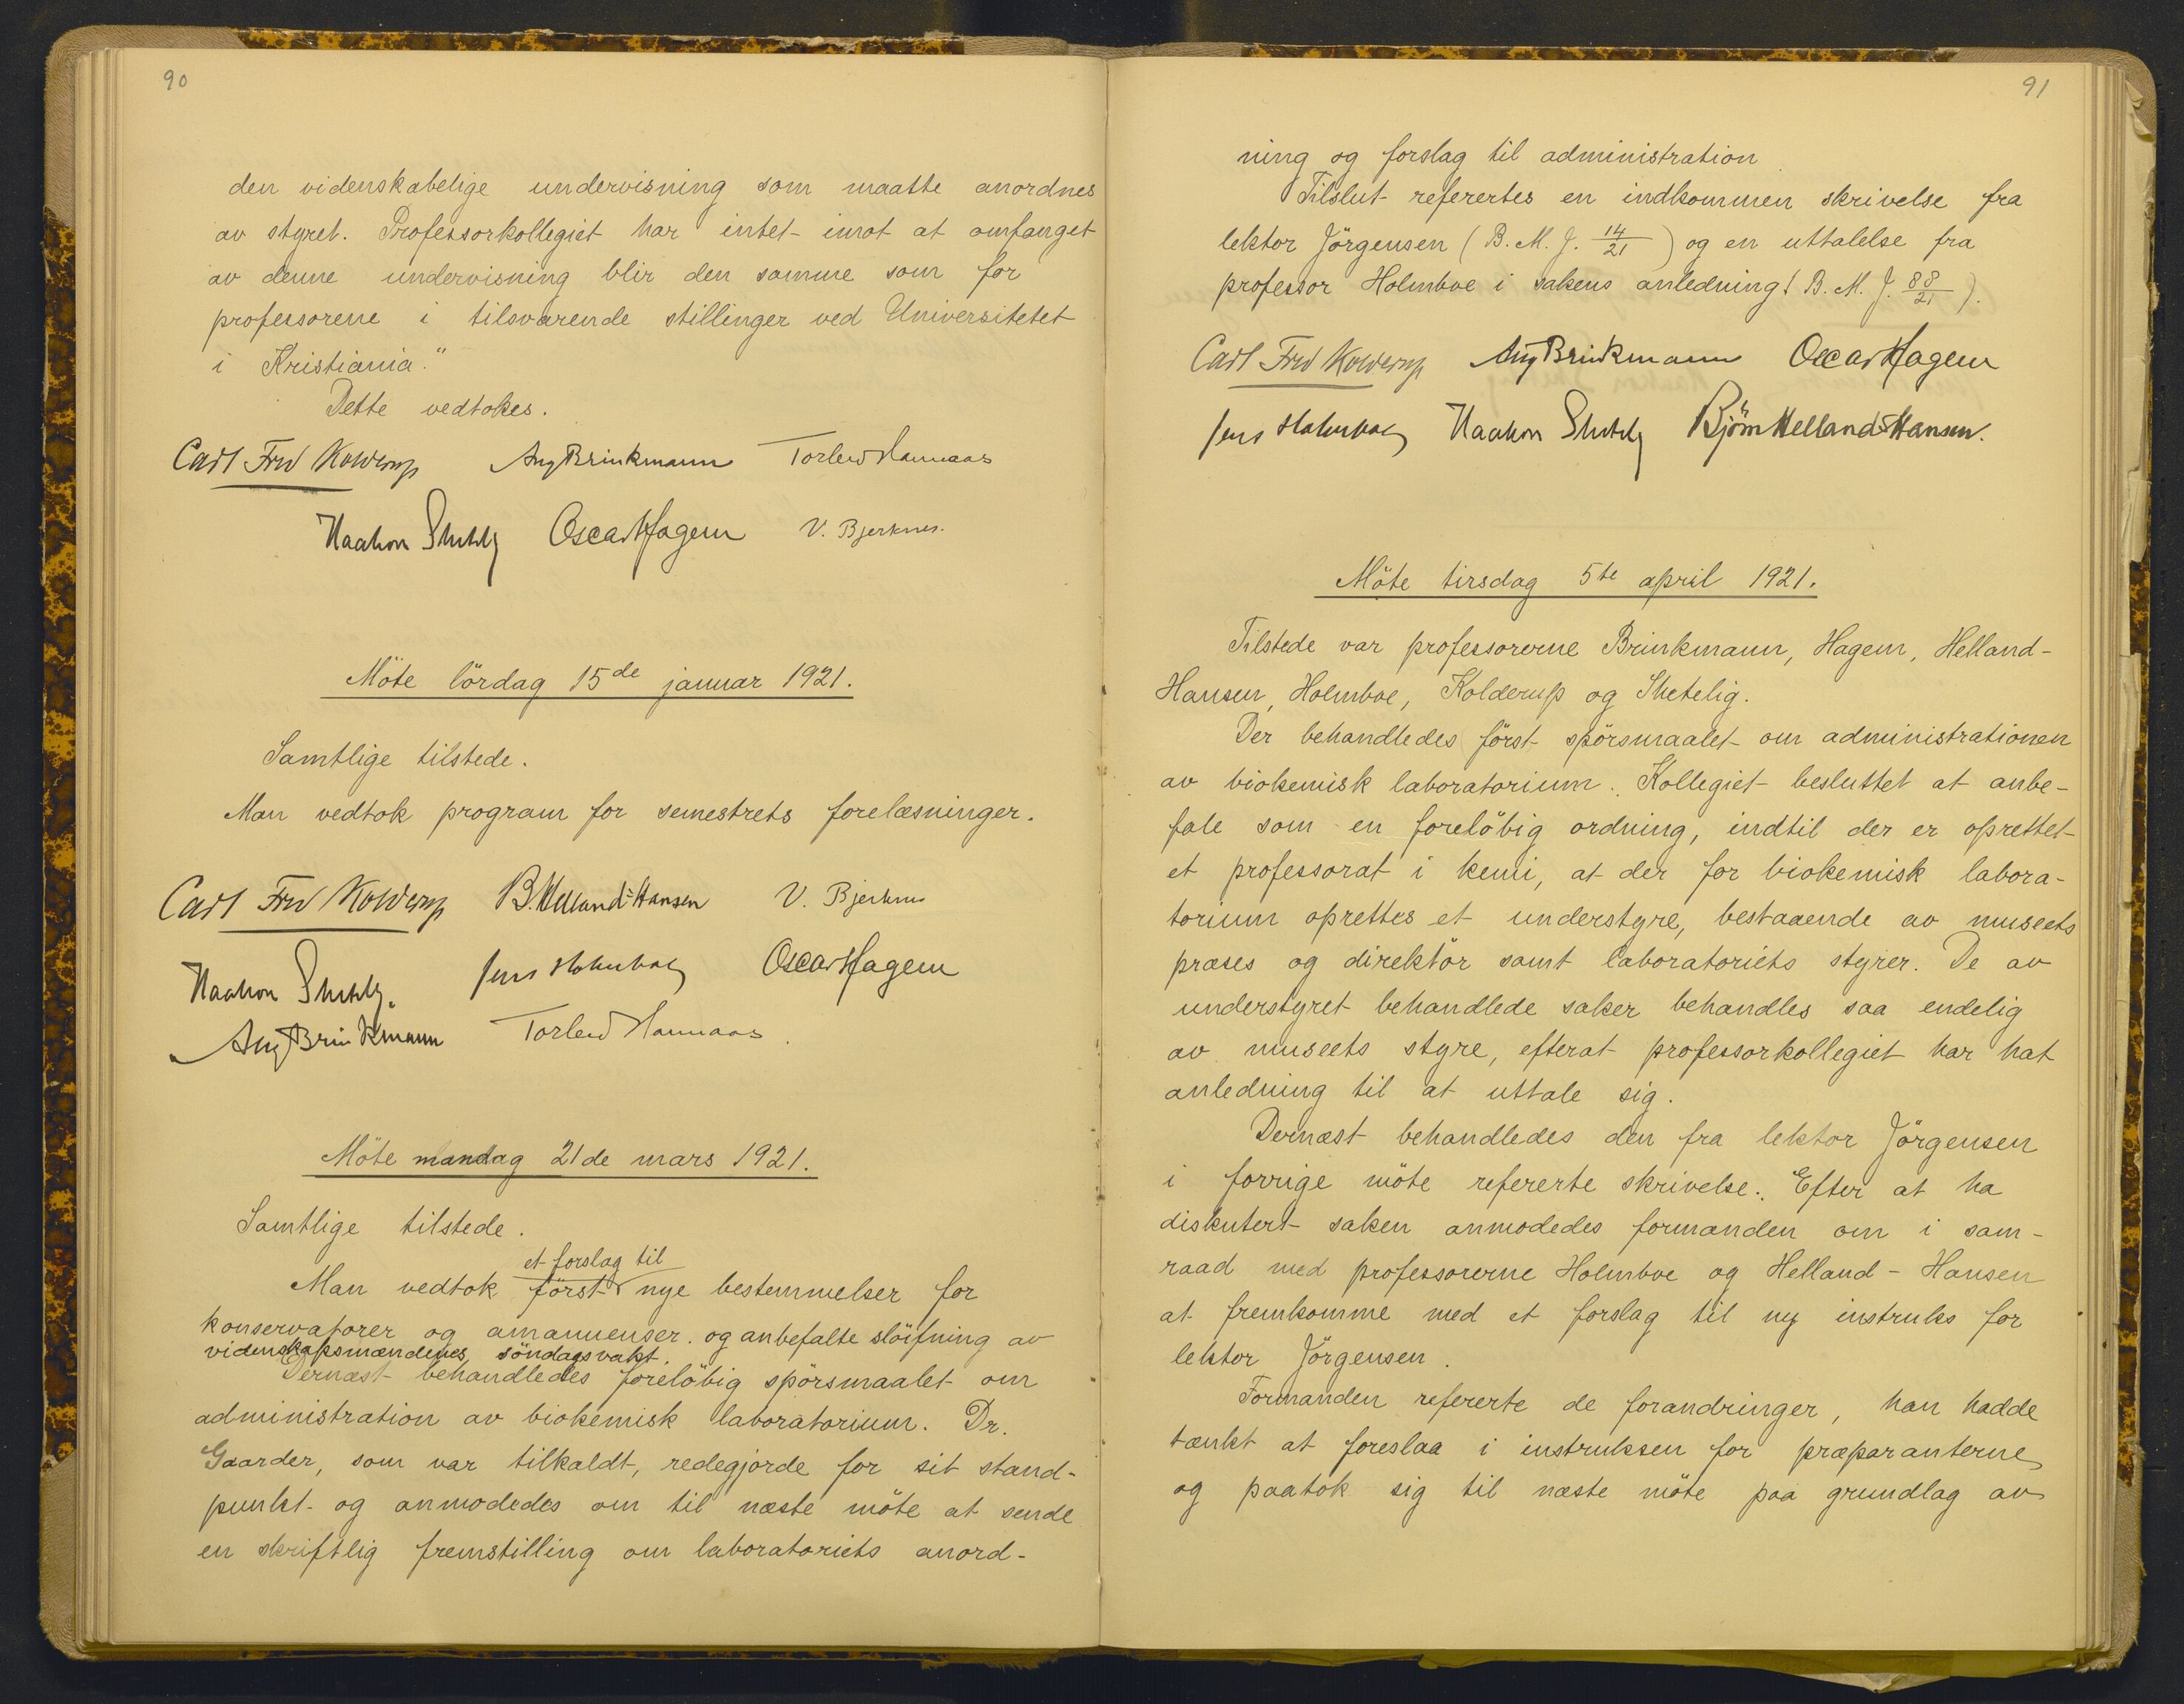 90
den videnskabelige undervisning som maatte anordnes
av styret. Professorkollegiet har intet imot at omfanget
av denne undervisning blir den samme som for
professorene i tilsvarende stillinger ved Universitetet
i Kristiania."
Dette vedtokes.
Carl Fred Kolderup Aug Brinkmann Torleiv Hannaas
Haakon Shetelig Oscar Hagem V. Bjerknes.
Möte lördag 15de januar 1921.
Samtlige tilstede.
Man vedtok program for semestrets forelæsninger.
Carl Fred Kolderup B. Helland-Hansen V. Bjerknes
Haakon Shetelig. Jens Holmboe Oscar Hagem
Aug Brinkmann Torleiv Hannaas.
Möte mandag 21de mars 1921.
Samtlige tilstede.
et forslag til
Man vedtok först nye bestemmelser for
konservatorer og amanuenser. og anbefalte slöifning av
videnskapsmændenes söndagsvakt.
Dernæst behandledes foreløbig spörsmaalet om
administration av biokemisk laboratorium. Dr.
Gaarder, som var tilkaldt, redegjorde for sit stand-
punkt og anmodedes om til næste möte at sende
en skriftlig fremstilling om laboratoriets anord-
91
ning og forslag til administration
Tilslut referertes en indkommen skrivelse fra
lektor Jörgensen (B. M. J. 14/21) og en uttalelse fra
professor Holmboe i sakens anledning (B. M. J. 88/21).
Carl Fred Kolderup Aug Brinkmann Oscar Hagem
Jens Holmboe Haakon Shetelig Björn Helland-Hansen.
Möte tirsdag 5te april 1921.
Tilstede var professorerne Brinkmann, Hagem, Helland-
Hansen, Holmboe, Kolderup og Shetelig.
Der behandledes först spörsmaalet om administrationen
av biokemisk laboratorium. Kollegiet besluttet at anbe-
fale som en forelöbig ordning, indtil der er oprettet
et professorat i kemi, at der for biokemisk labora-
torium oprettes et understyre, bestaaende av museets
præses og direktör samt laboratoriets styrer. De av
understyret behandlede saker behandles saa endelig
av museets styre, efterat professorkollegiet har hat
anledning til at uttale sig.
Dernæst behandledes den fra lektor Jörgensen
i forrige möte refererte skrivelse. Efter at ha
diskutert saken anmodedes formanden om i sam-
raad med professorerne Holmboe og Helland-Hansen
at fremkomme med et forslag til ny instruks for
lektor Jörgensen.
Formanden refererte de forandringer, han hadde
tænkt at foreslaa i instruksen for præparanterne
og paatok sig til næste möte paa grundlag av